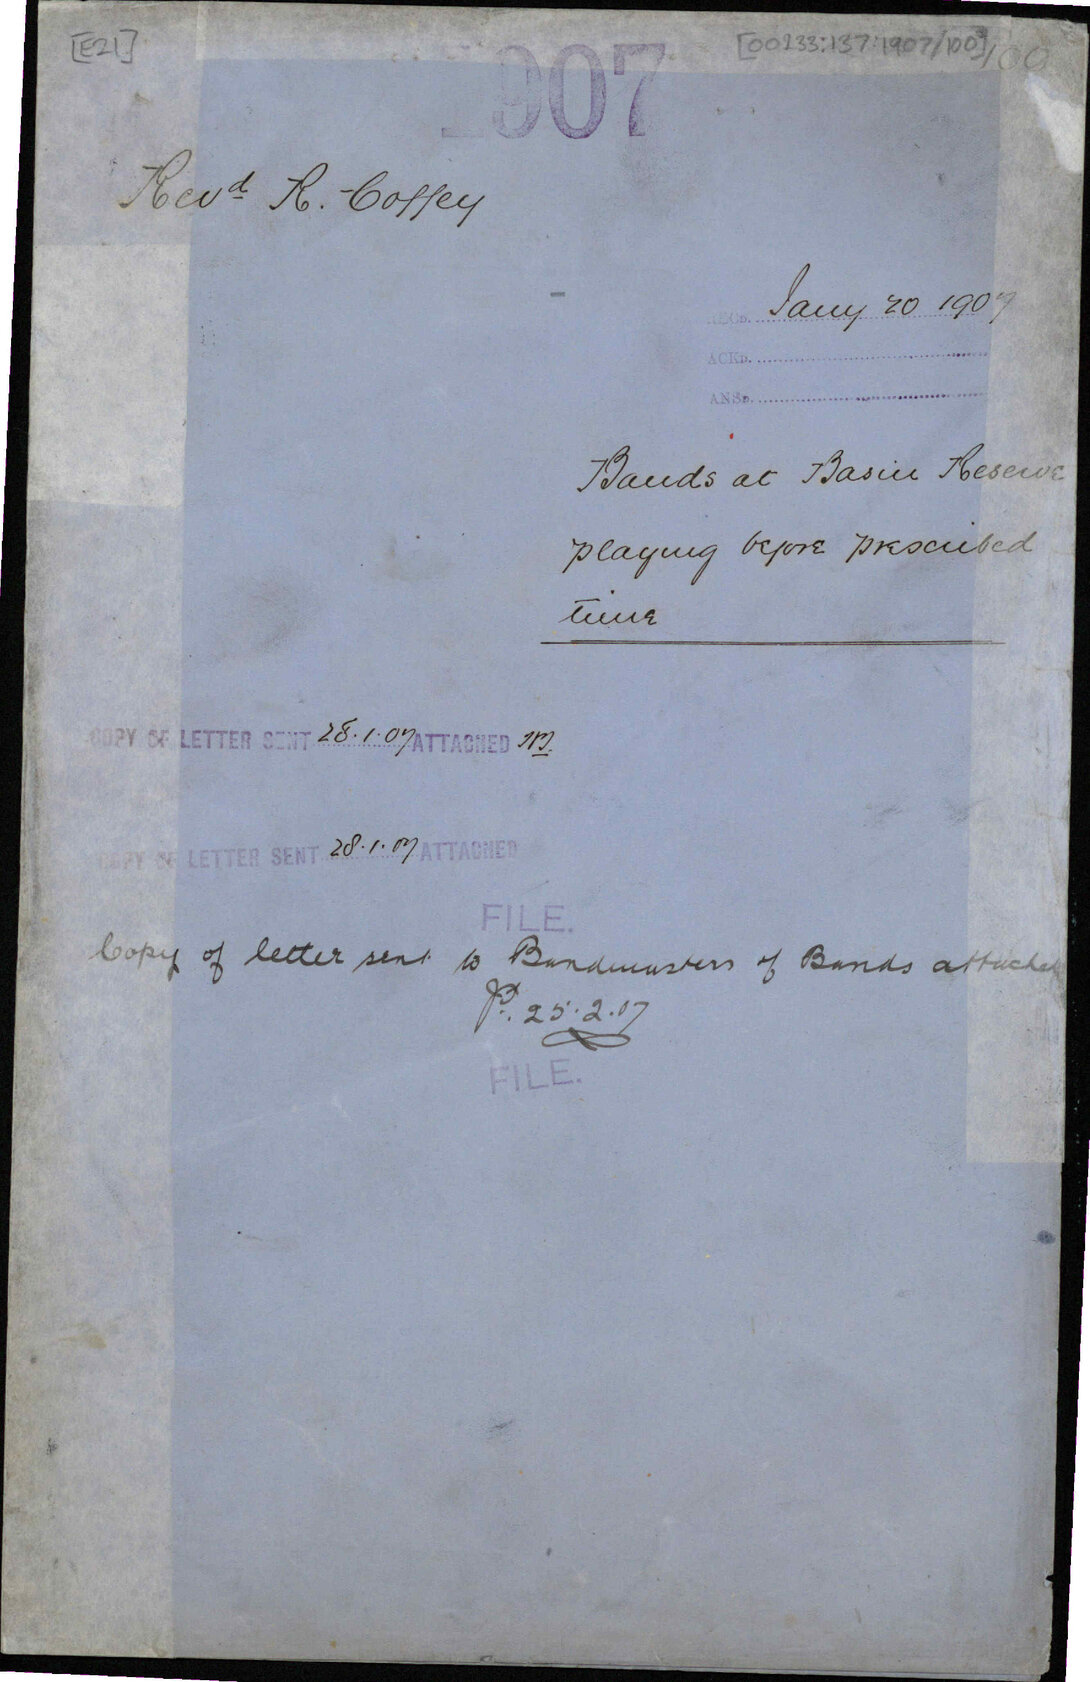 [E21]
[00233:137:1907/100]
100
1907
Revd R. Coffey
RECD. Jany 20 1907
ACKD.
ANSD.
Bands at Basin Reserve
playing before prescribed
time
COPY OF LETTER SENT 28.1.07 ATTACHED
COPY OF LETTER SENT 28.1.07 ATTACHED
FILE.
Copy of letter sent to Bandmasters of Bands attached
25.2.07
FILE.